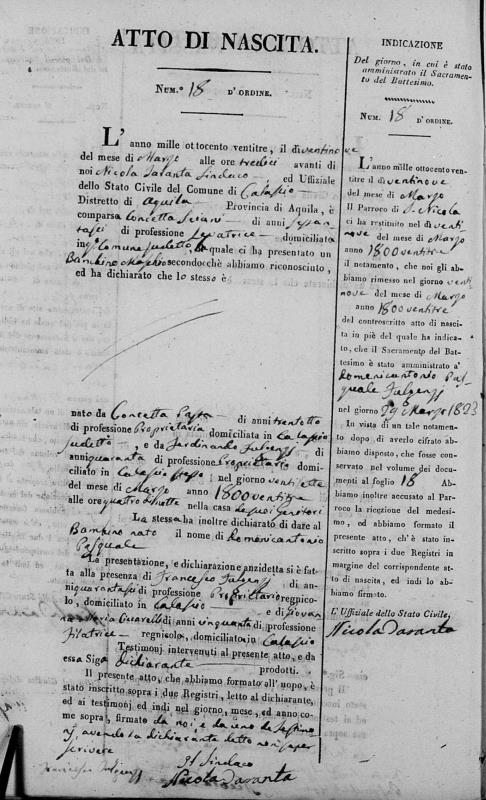 ATTO DI NASCITA.
NUM.º 18 D'ORDINE.
L'anno mille ottocento ventitre, il dì ventinove
del mese di Marzo alle ore tredici avanti di
noi Nicola Taranta Sindaco, ed Uffiziale
dello Stato Civile del Comune di Calascio
Distretto di Aquila Provincia di Aquila, è
comparsa Concetta di anni sessan
tasei di professione Levatrice domiciliata
in Comune sudetto, la quale ci ha presentato un
Bambino Maschio secondocchè abbiamo riconosciuto,
ed ha dichiarato che lo stesso è
nato da Concetta di anni trentotto
di professione Proprietaria domiciliata in Calascio
sudetto, e da Ferdinando Fulgenzj, di
anni quaranta di professione Proprietario domi-
ciliato in Calascio stesso, nel giorno ventisette
del mese di Marzo anno 1800 ventitre
alle ore quattro di notte nella casa de suoi genitori
La stessa ha inoltre dichiarato di dare al
Bambino nato il nome di Domenicantonio
Pasquale
La presentazione, e dichiarazione anzidetta si è fat-
ta alla presenza di Francesco Fulgenzj di an-
ni quarantasei di professione Proprietario regnico-
lo, domiciliato in Calascio e di Giovan
na Maria di anni cinquanta di professione
Filatrice regnicola, domiciliato in Calascio
Testimonj intervenuti al presente atto, e da
essa Sig.a dichiarante prodotti.
Il presente atto, che abbiamo formato all'uopo, è
stato inscritto sopra i due Registri, letto al dichiarante,
ed ai testimonj ed indi nel giorno, mese, ed anno co-
me sopra, firmato da noi e da uno de testimo
nj, avendo la dichiarante detto non saper
scrivere
Il Sindaco
Francesco Fulgenzj
Nicola Taranta
INDICAZIONE
Del giorno, in cui è stato
amministrato il Sacramen-
to del Battesimo.
NUM. 18 D'ORDINE.
L'anno mille ottocento ven-
titre il dì ventinove
del mese di Marzo
Il Parroco di S. Nicola
ci ha restituito nel dì venti
nove del mese di Marzo
anno 1800 ventitre
il notamento, che noi gli ab-
biamo rimesso nel giorno venti
nove del mese di Marzo
anno 1800 ventitre
del controscritto atto di nasci-
ta in piè del quale ha indica-
to, che il Sacramento del Bat-
tesimo è stato amministrato a
Domenicantonio Pas
quale Fulgenzj
nel giorno 29 Marzo 1823
In vista di un tale notamento
dopo di averlo cifrato abbiamo
disposto, che fosse con-
servato nel volume dei docu-
menti al foglio 18 Ab-
biamo inoltre accusato al Par-
roco la ricezione del medesi-
mo, ed abbiamo formato il
presente atto, ch'è stato in-
scritto sopra i due Registri in
margine del corrispondente atto
di nascita, ed indi lo ab-
biamo firmato.
L'Uffiziale dello Stato Civile,
Nicola Taranta